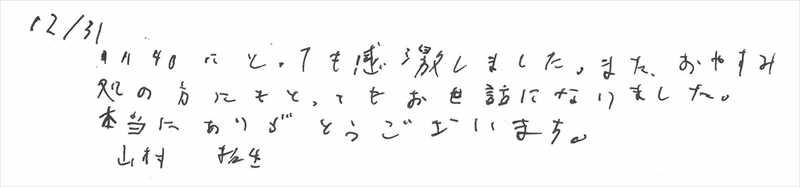 12/31
にとっても感激しました。また、おやすみ
処の方にもとってもお世話になりました。
本当にありがとうございます。
山村